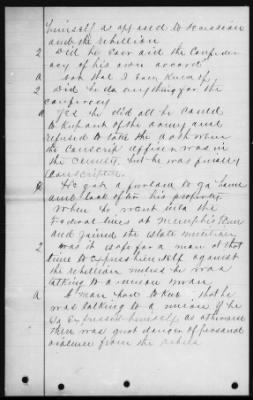 himself as opposed to secession
and the rebellion
2 Did he ever aid the Confeder
acy of his own accord
a Not that I ever knew of
2 Did he do anything for the
confeder acy
a Yes he did all he could
to keep out of the army and
refused to take the oath when
the Conscript officer was in
the County but he was finally
Conscripted
He got a furlough to go home
and look after his property
when he went into the
Federal lines at Memphis Tenn
and joined the state militia
2 was it safe for a man at that
time to express himself against
the rebellion unless he was
talking to a union man
a A man had to know that he
was talking to a union if he
so expressed himself as otherwise
there was great danger of personal
violence from the rebels